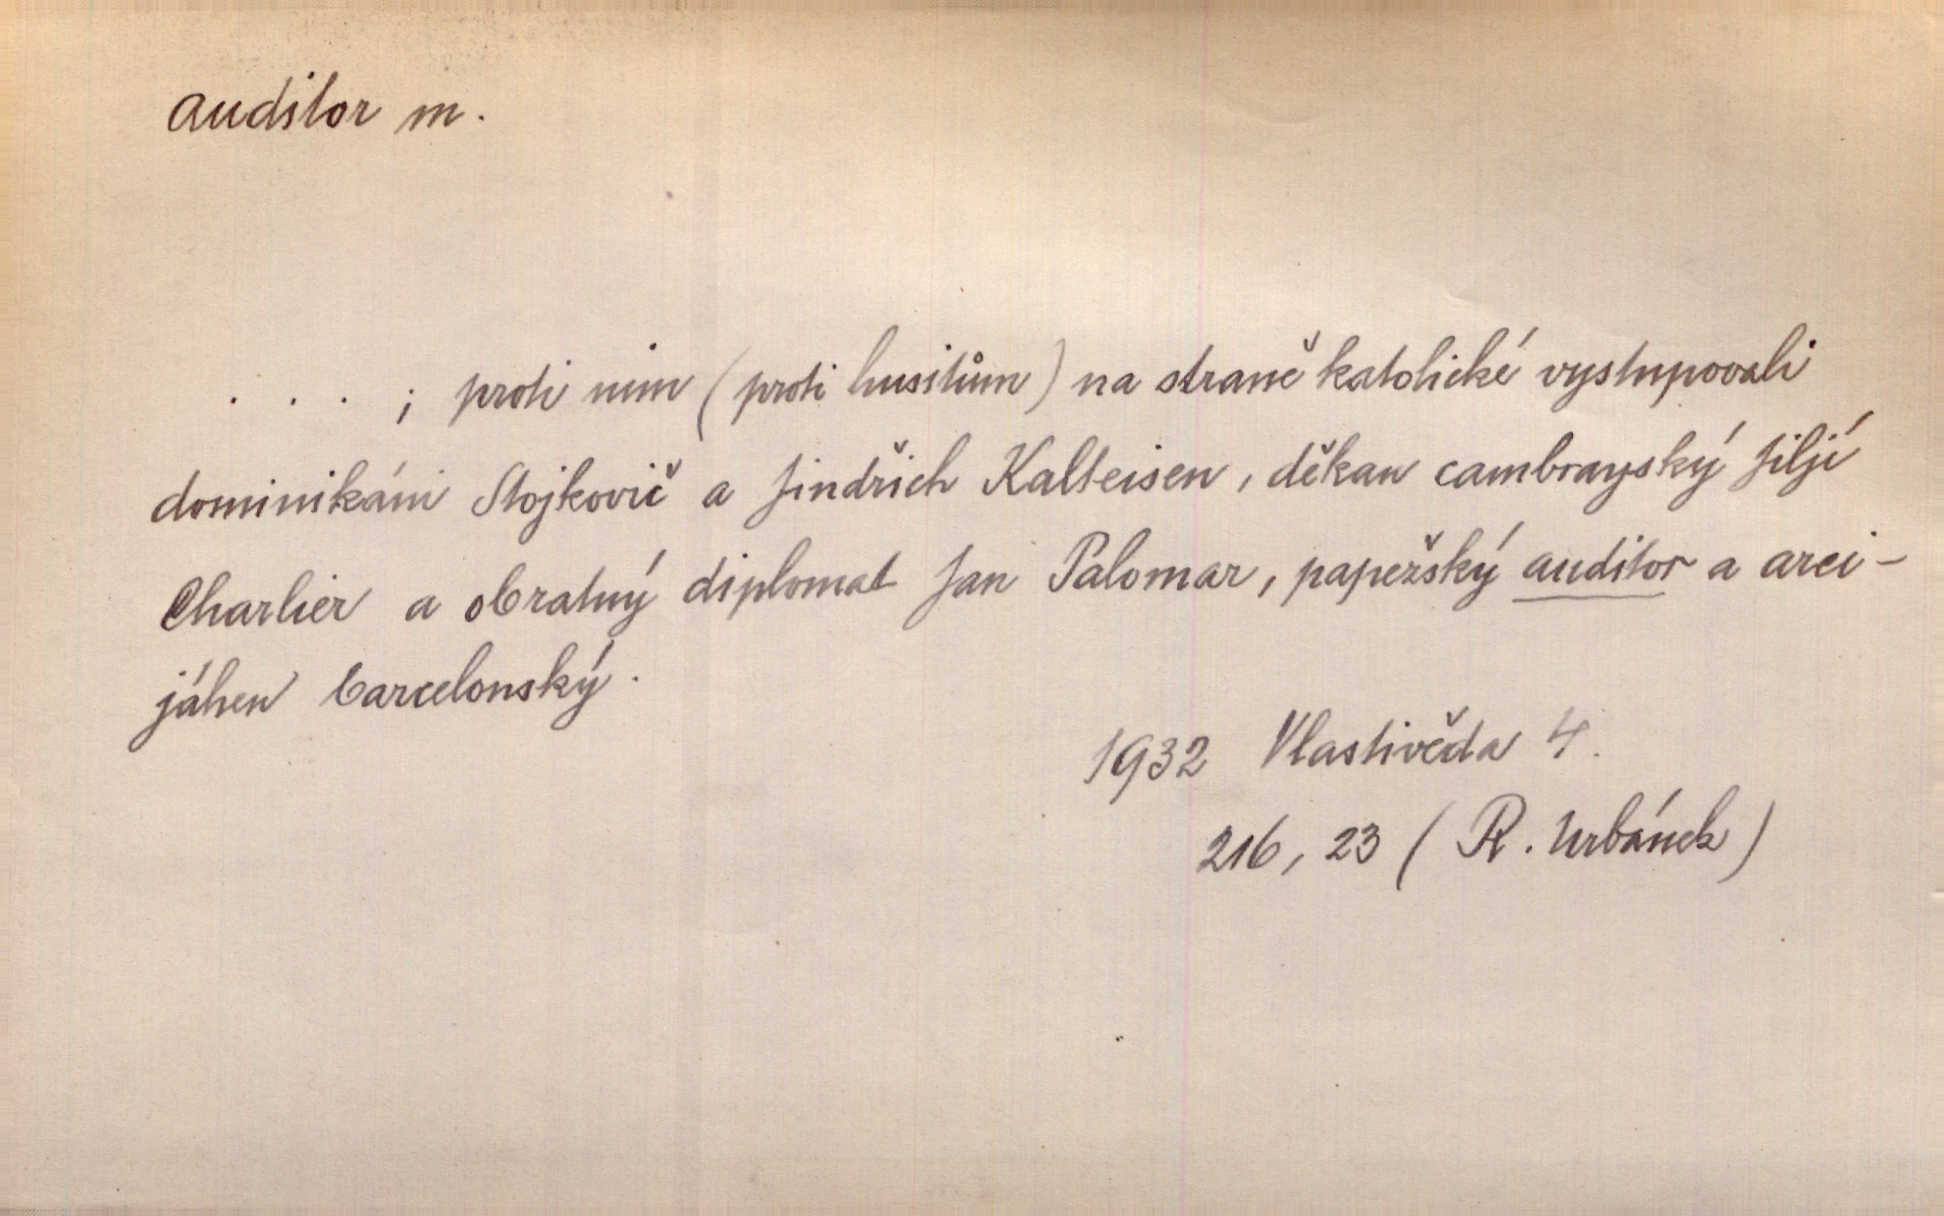 auditor m.
. . . ; proti nim (proti husitům) na straně katolické vystupovali
dominikáni Stojkovič a Jindřich Kalteisen, děkan cambrayský Jiljí
Charlier a obratný diplomat Jan Palomar, papežský auditor a arci-
jáhen barcelonský.
1932 Vlastivěda 4.
216, 23 (R. Urbánek)